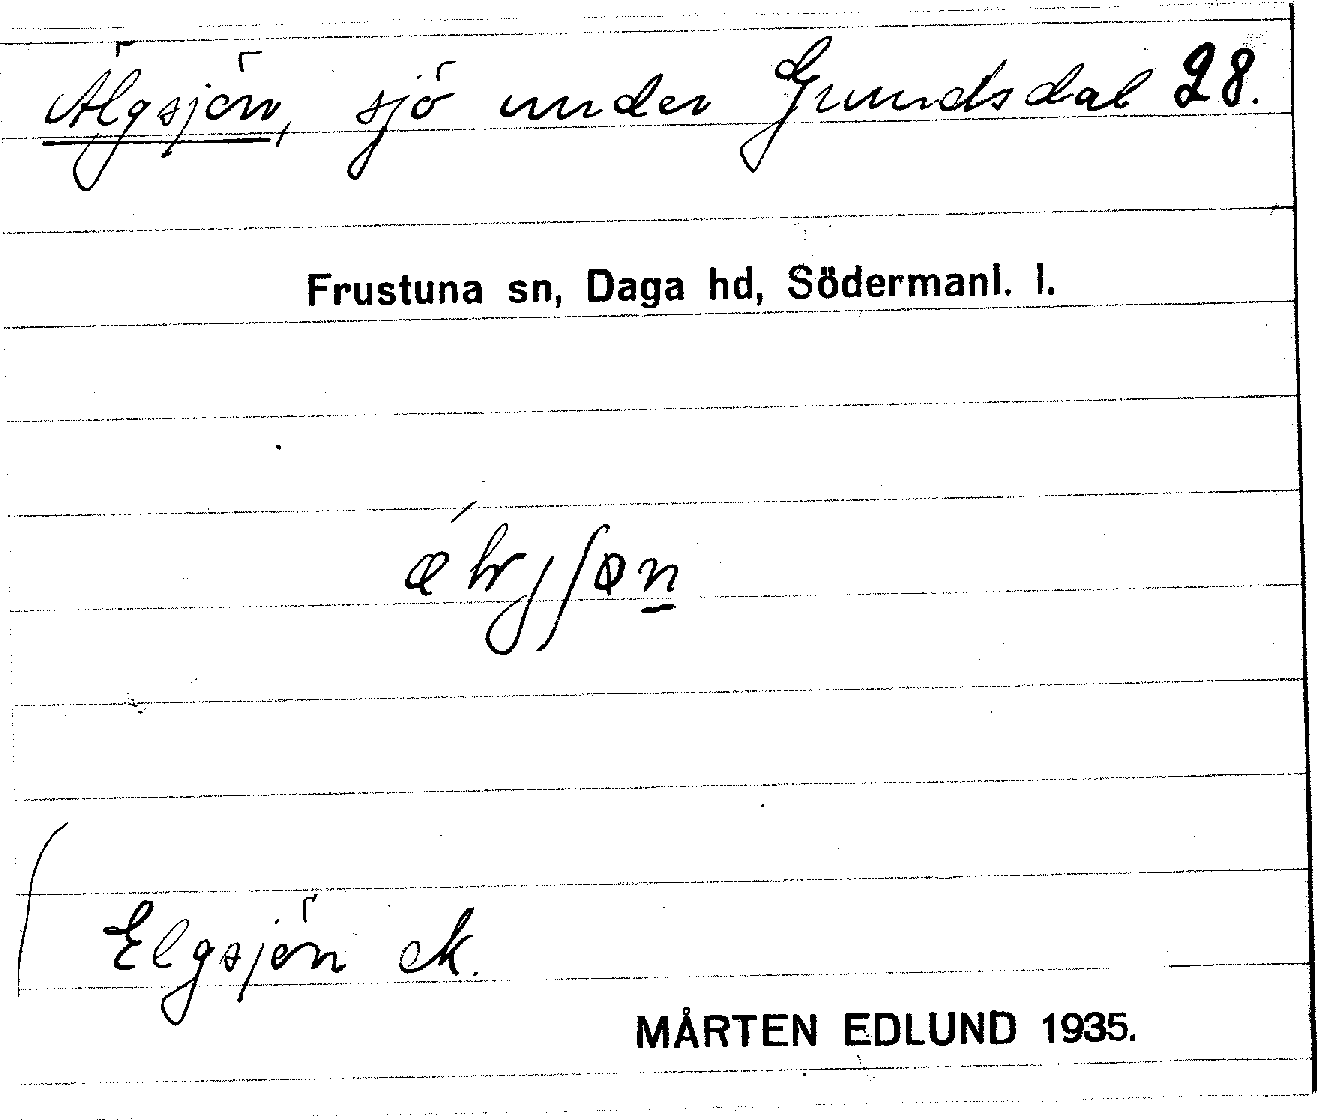 Älgsjön, sjö under Grundsdal 28.
Frustuna sn, Daga hd, Södermanl. l.
Elgsjön ek.
MÅRTEN EDLUND 1935.